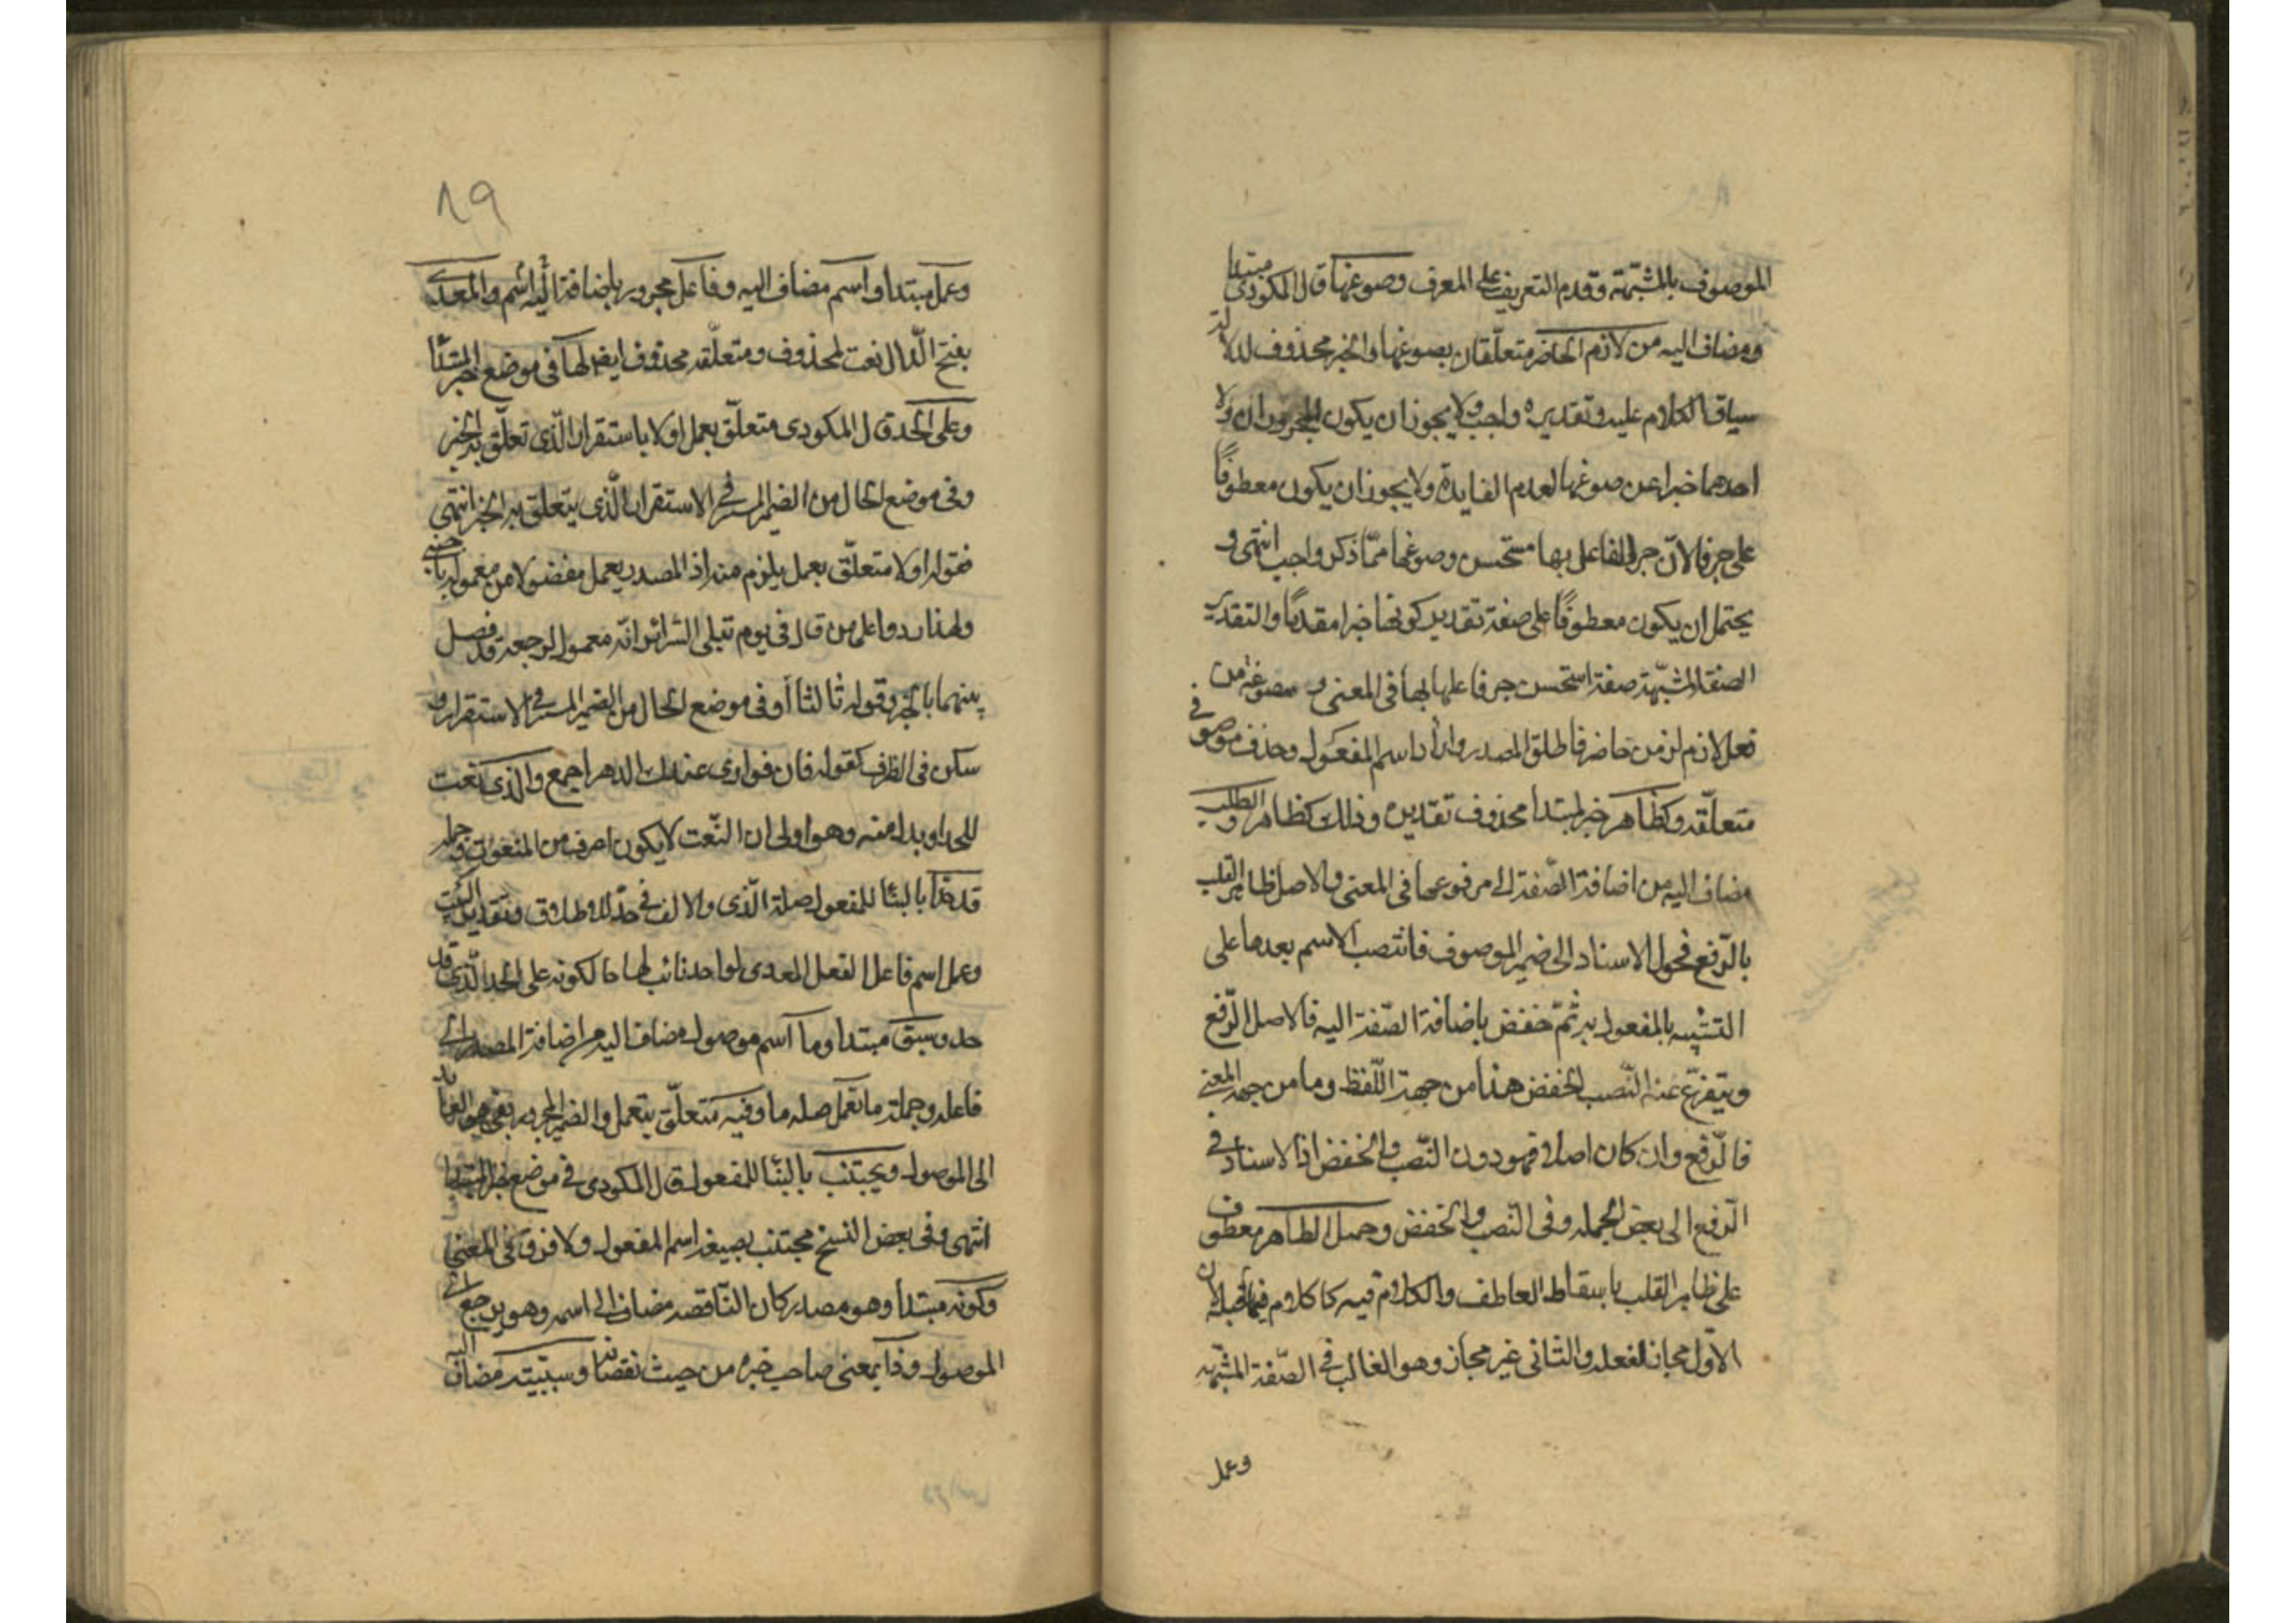 الموصوف بالمشبهة وقدم التعريف على المعرف وصوغها قال المكودي مبتدا
ومضاف اليه من لازم الحاضر متعلقان بصوغها والخبر محذوف لدلالة
سياق الكلام عليه وتقديره واجب ولا يجوز ان يكون المجروران ولا
احدهما خبرا عن صوغها لعدم الفايدة ولا يجوز ان يكون معطوفًا
على جر فا لانّ جر الفاعل بها مستحسن وصوغها ممّا ذكر واجب انتهى و
يحتمل ان يكون معطوفًا على صفة تقدير كونها خبرا مقدمًا والتقدير
الصفة المشبّهة صفة استحسن جر فاعلها بها في المعنى و مصوغة من
فعل لازم لزمن حاضر فاطلق المصدر واراد اسم المفعول وحذف موصوف
متعلّقه وكظاهر خبر لمبتدا محذوف تقديره وذلك كظاهر القلب و
مضاف اليه من اضافة الصّفة الى مرفوعها في المعنى والاصل ظاهر القلب
بالرّفع فحول الاسناد الى ضمير الموصوف فانتصب الاسم بعدها على
التشبيه بالمفعول به ثمّ خفض باضافة الصّفة اليه فالاصل الرّفع
ويتفرّع عنه النّصب الخفض هذا من جهة اللّفظ وما من جهة المعنى
فالرّفع وان كان اصلا فهو دون النّصب والخفض اذ الاسناد في
الرّفع الى بعض الجمله وفى النّصب والخفض وجميل الظاهر معطوف
على ظاهر القلب باسقاط العاطف والكلام فيه كالكلام فيما قبله الا ان
الاوّل مجاز لفعله والثانى غير مجاز وهو الغالب في الصّفة المشبّهه
وعمل
٨٩
وعمل مبتدا واسم مضاف اليه وفاعل مجرور باضافة اليه اسم والمعدّى
بفتح الدّال نعت لمحذوف ومتعلّقه محذوف ايضا لها فى موضع خبر المبتدا
وعلى الحد قال المكودى متعلّق بعمل اولا باستقرار الّذى تعلّق به الخبر
وفى موضع الحال من الضمير المستتر فى الاستقرار الّذى يتعلّق به الخبر انتهى
فقوله اولا متعلّق بعمل يلزم منه اذ المصدر يعمل مفصولا من معموله باجنبى
ولهذا ردوا على من قال فى يوم تبلى السّرائر انّه معمول لرجعه قد فصل
بينهما بالخبر وقوله ثالثا أو فى موضع الحال من الضمير المستتر فى الاستقرار و
سكن فى الظرف كقوله فان فوادى عندك الدهر اجمع والّذى نعت
للحد او بدل منه وهو اولى ان النّعت لا يكون اعرف من المنعوت وجملة
قد حدّا بالبنا للمفعول صلة الّذى والالف في حدّا للاطلاق وتقدير البيت
وعمل اسم فاعل الفعل المعدى لواحد ثابت لها حالكونه على الحد الّذى قد
حد وسبق مبتدا وما اسم موصول مضاف اليه من اضافة المصدر الى
فاعله وجملة ما تعمل صلة ما وفيه متعلّق بتعمل والضمير المجرور بفى هو العائد
الى الموصول ويجتنب بالبنا للمفعول قال المكودى في موضع خبر المبتدا
انتهى وفى بعض النسخ مجتنب بصيغة اسم المفعول ولا فرق فى المعنى
وكونه مبتدأ وهو مصدر كان النّاقصه مضاف الى اسمه وهو يرجع الى
الموصول وذا بمعنى صاحب خبره من حيث نقصانه وسببيّة مضاف اليه